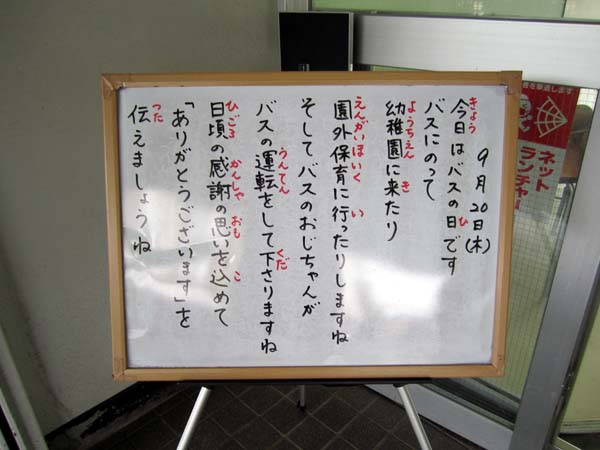 9月20日(木)
今日はバスの日です
バスにのって
幼稚園に来たり
園外保育に行ったりしますね
そしてバスのおじちゃんが
バスの運転をして下さりますね
日頃の感謝の思いを込めて
「ありがとうございます」を
伝えましょうね
きょう
ひ
ようちえん
き
えんがいほいく
い
うんてん
くだ
ひごろ
かんしゃ
おも
こ
つた
ネット
ランチャー